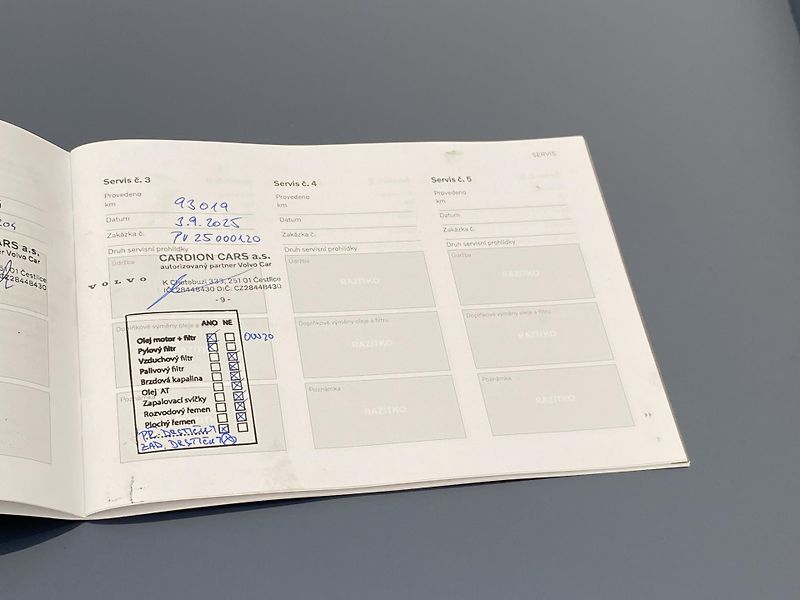 SERVIS
Servis č. 3
Provedeno
km
93019
Datum
3.9.2025
Zakázka č.
PV25000120
Druh servisní prohlídky
Údržba
CARDION CARS a.s.
autorizovaný partner Volvo Car
VOLVO
K Chotobuzi 333, 251 01 Čestlice
IČ:28448430 DIČ: CZ28448430
- 9 -
ANO NE
Olej motor + filtr
0W20
Pylový filtr
Vzduchový filtr
Palivový filtr
Brzdová kapalina
Olej AT
Zapalovací svíčky
Rozvodový řemen
Plochý řemen
Servis č. 4
Provedeno
km
Datum
Zakázka č.
Druh servisní prohlídky
Údržba
RAZÍTKO
Doplňkové výměny oleje a filtru
RAZÍTKO
Poznámka
RAZÍTKO
Servis č. 5
Provedeno
km
Datum
Zakázka č.
Druh servisní prohlídky
Údržba
RAZÍTKO
Doplňkové výměny oleje a filtru
RAZÍTKO
Poznámka
RAZÍTKO
››
CARS a.s.
partner Volvo Car
01 Čestlice
28448430